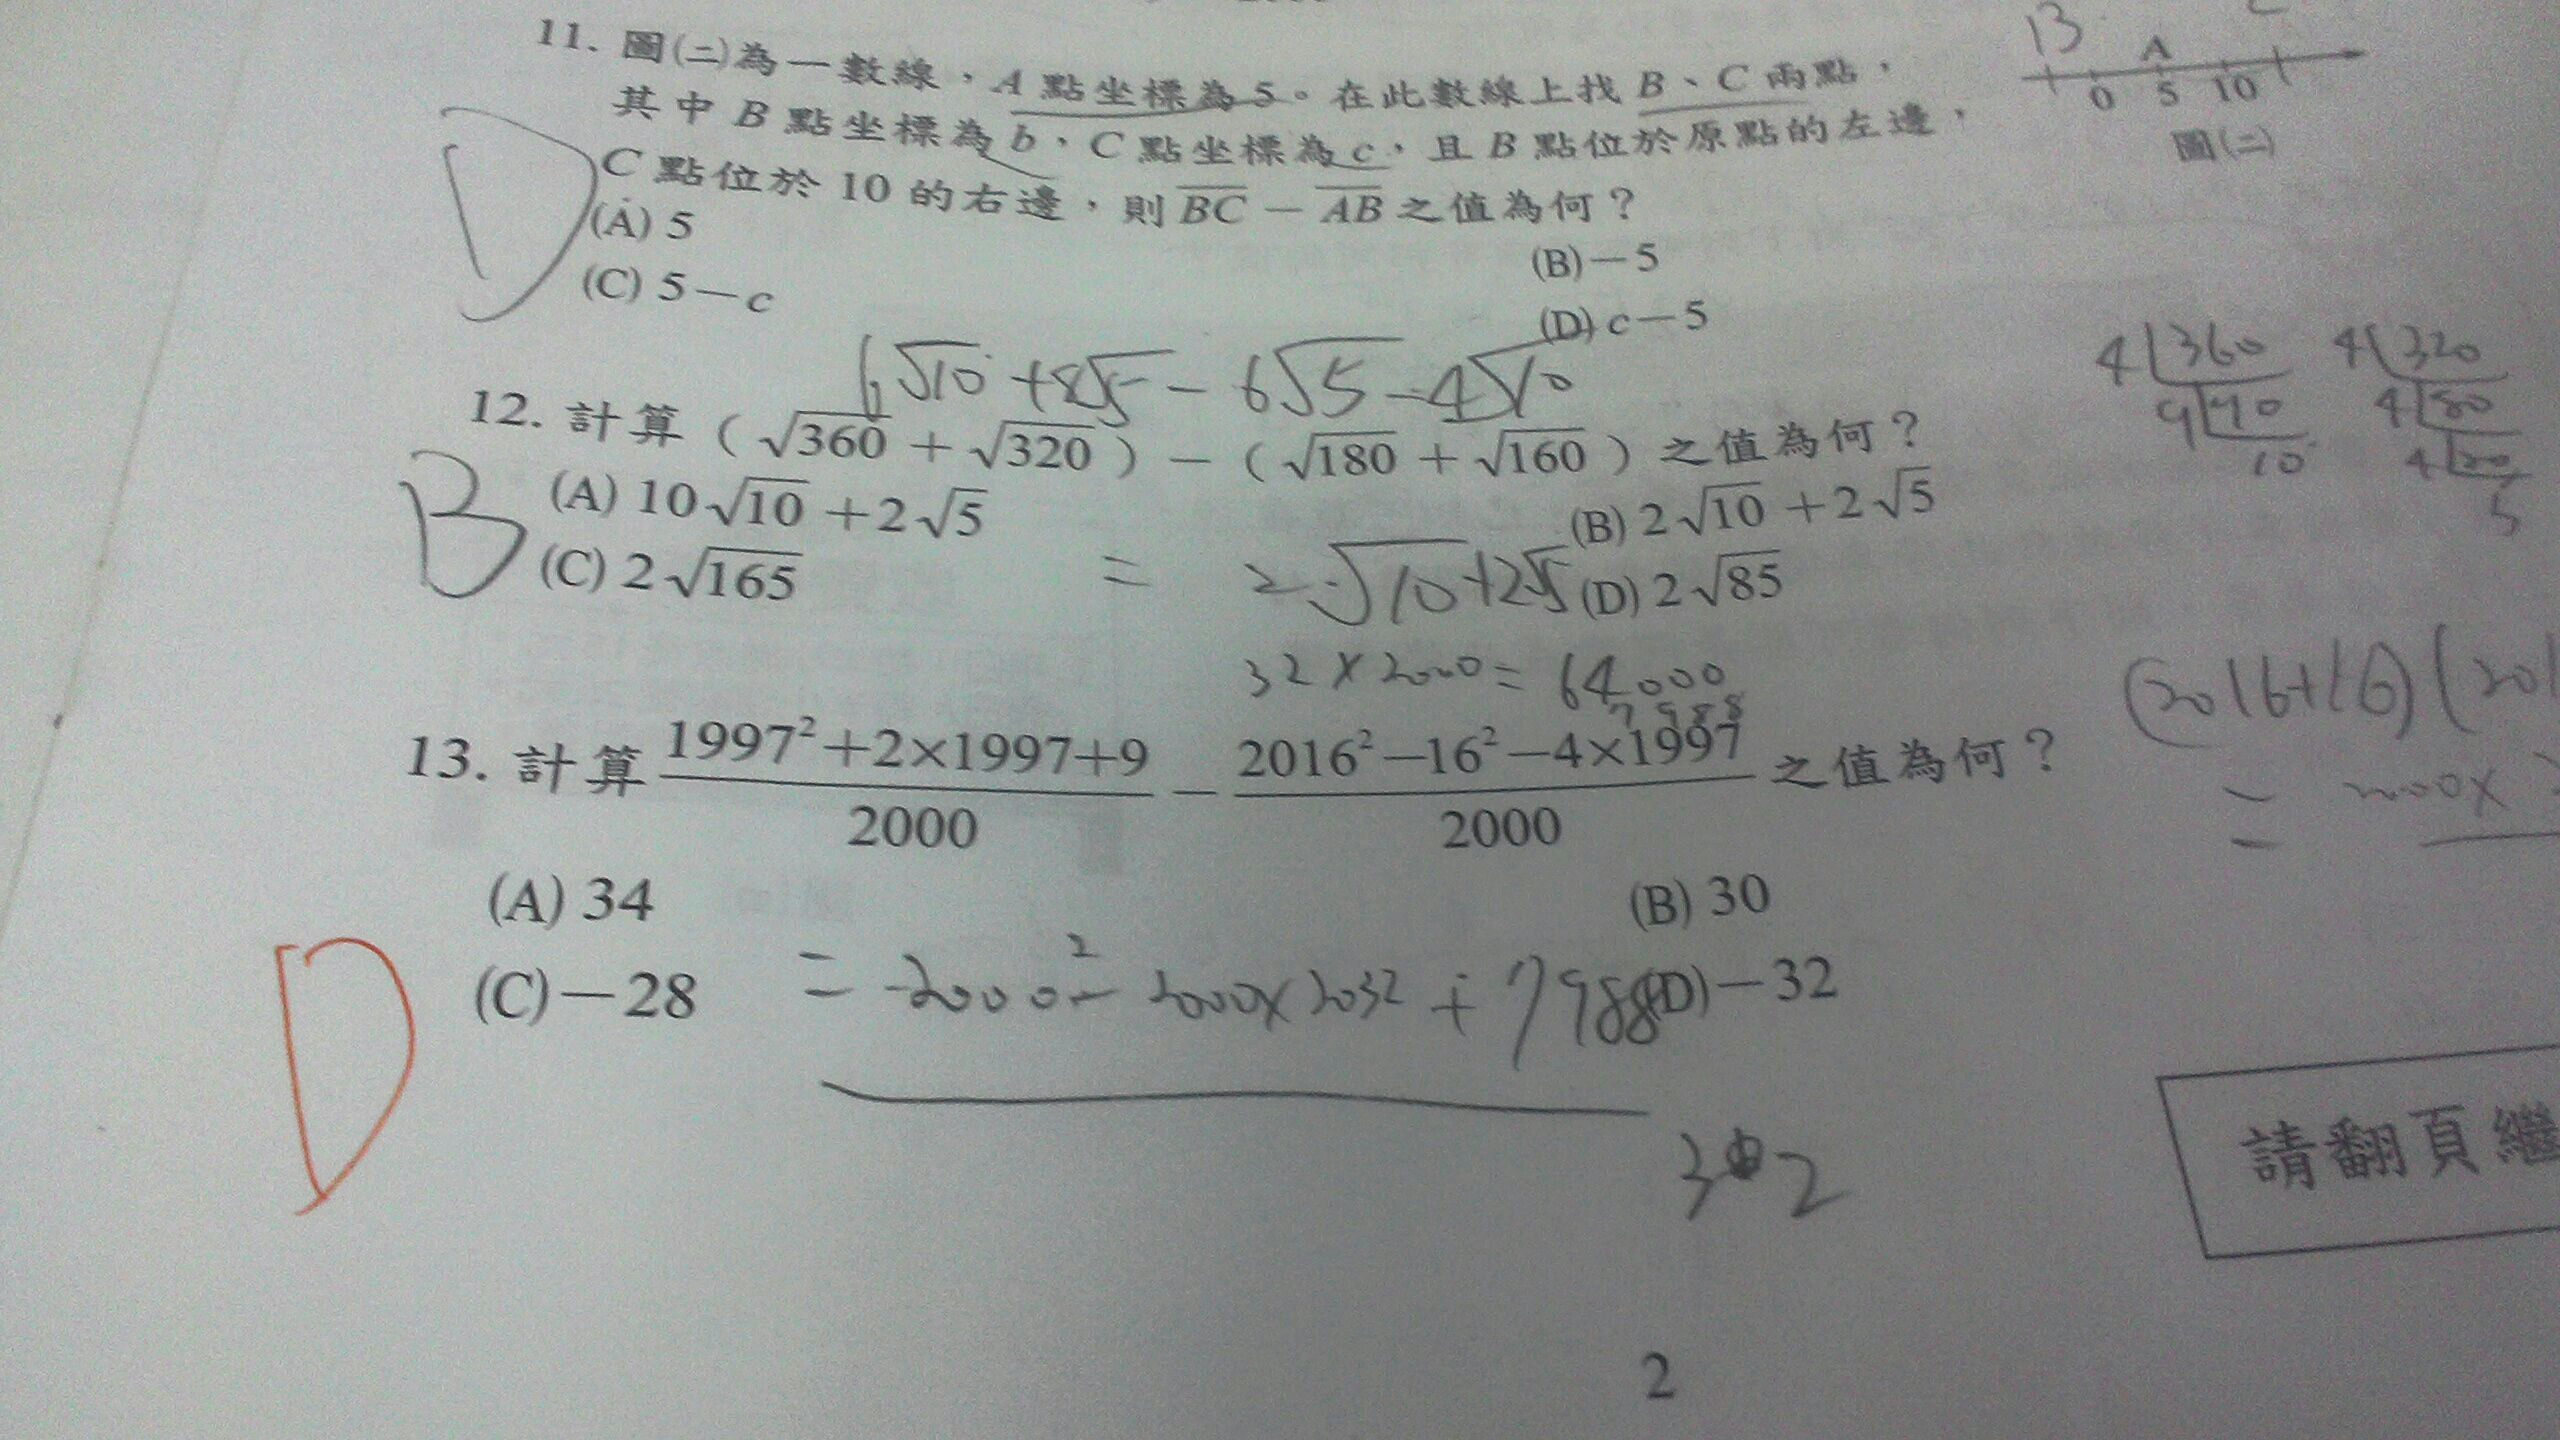 11. 圖(二)為一數線，A 點坐標為 5。在此數線上找 B、C 兩點，
其中 B 點坐標為 b，C 點坐標為 c，且 B 點位於原點的左邊，
C 點位於 10 的右邊，則 BC － AB 之值為何？
(A) 5
(B) －5
(C) 5－c
(D) c－5
13
A
0 5 10
圖(二)
D
6√10 +8√5 － 6√5 －4√10
12. 計算（√360 + √320）－（√180 + √160）之值為何？
(A) 10√10 +2√5
(B) 2√10 +2√5
(C) 2√165
(D) 2√85
B
= 2√10+2√5
4 360
9 90
10
4 320
4 80
4 20
5
32 × 2000 = 64000
7988
13. 計算 1997²+2×1997+9/2000 － 2016²－16²－4×1997/2000 之值為何？
(A) 34
(B) 30
(C)－28
(D)－32
D
= 2000² － 2000×2032 + 7988
(2016+16)(201
= 2000×
請翻頁繼
2